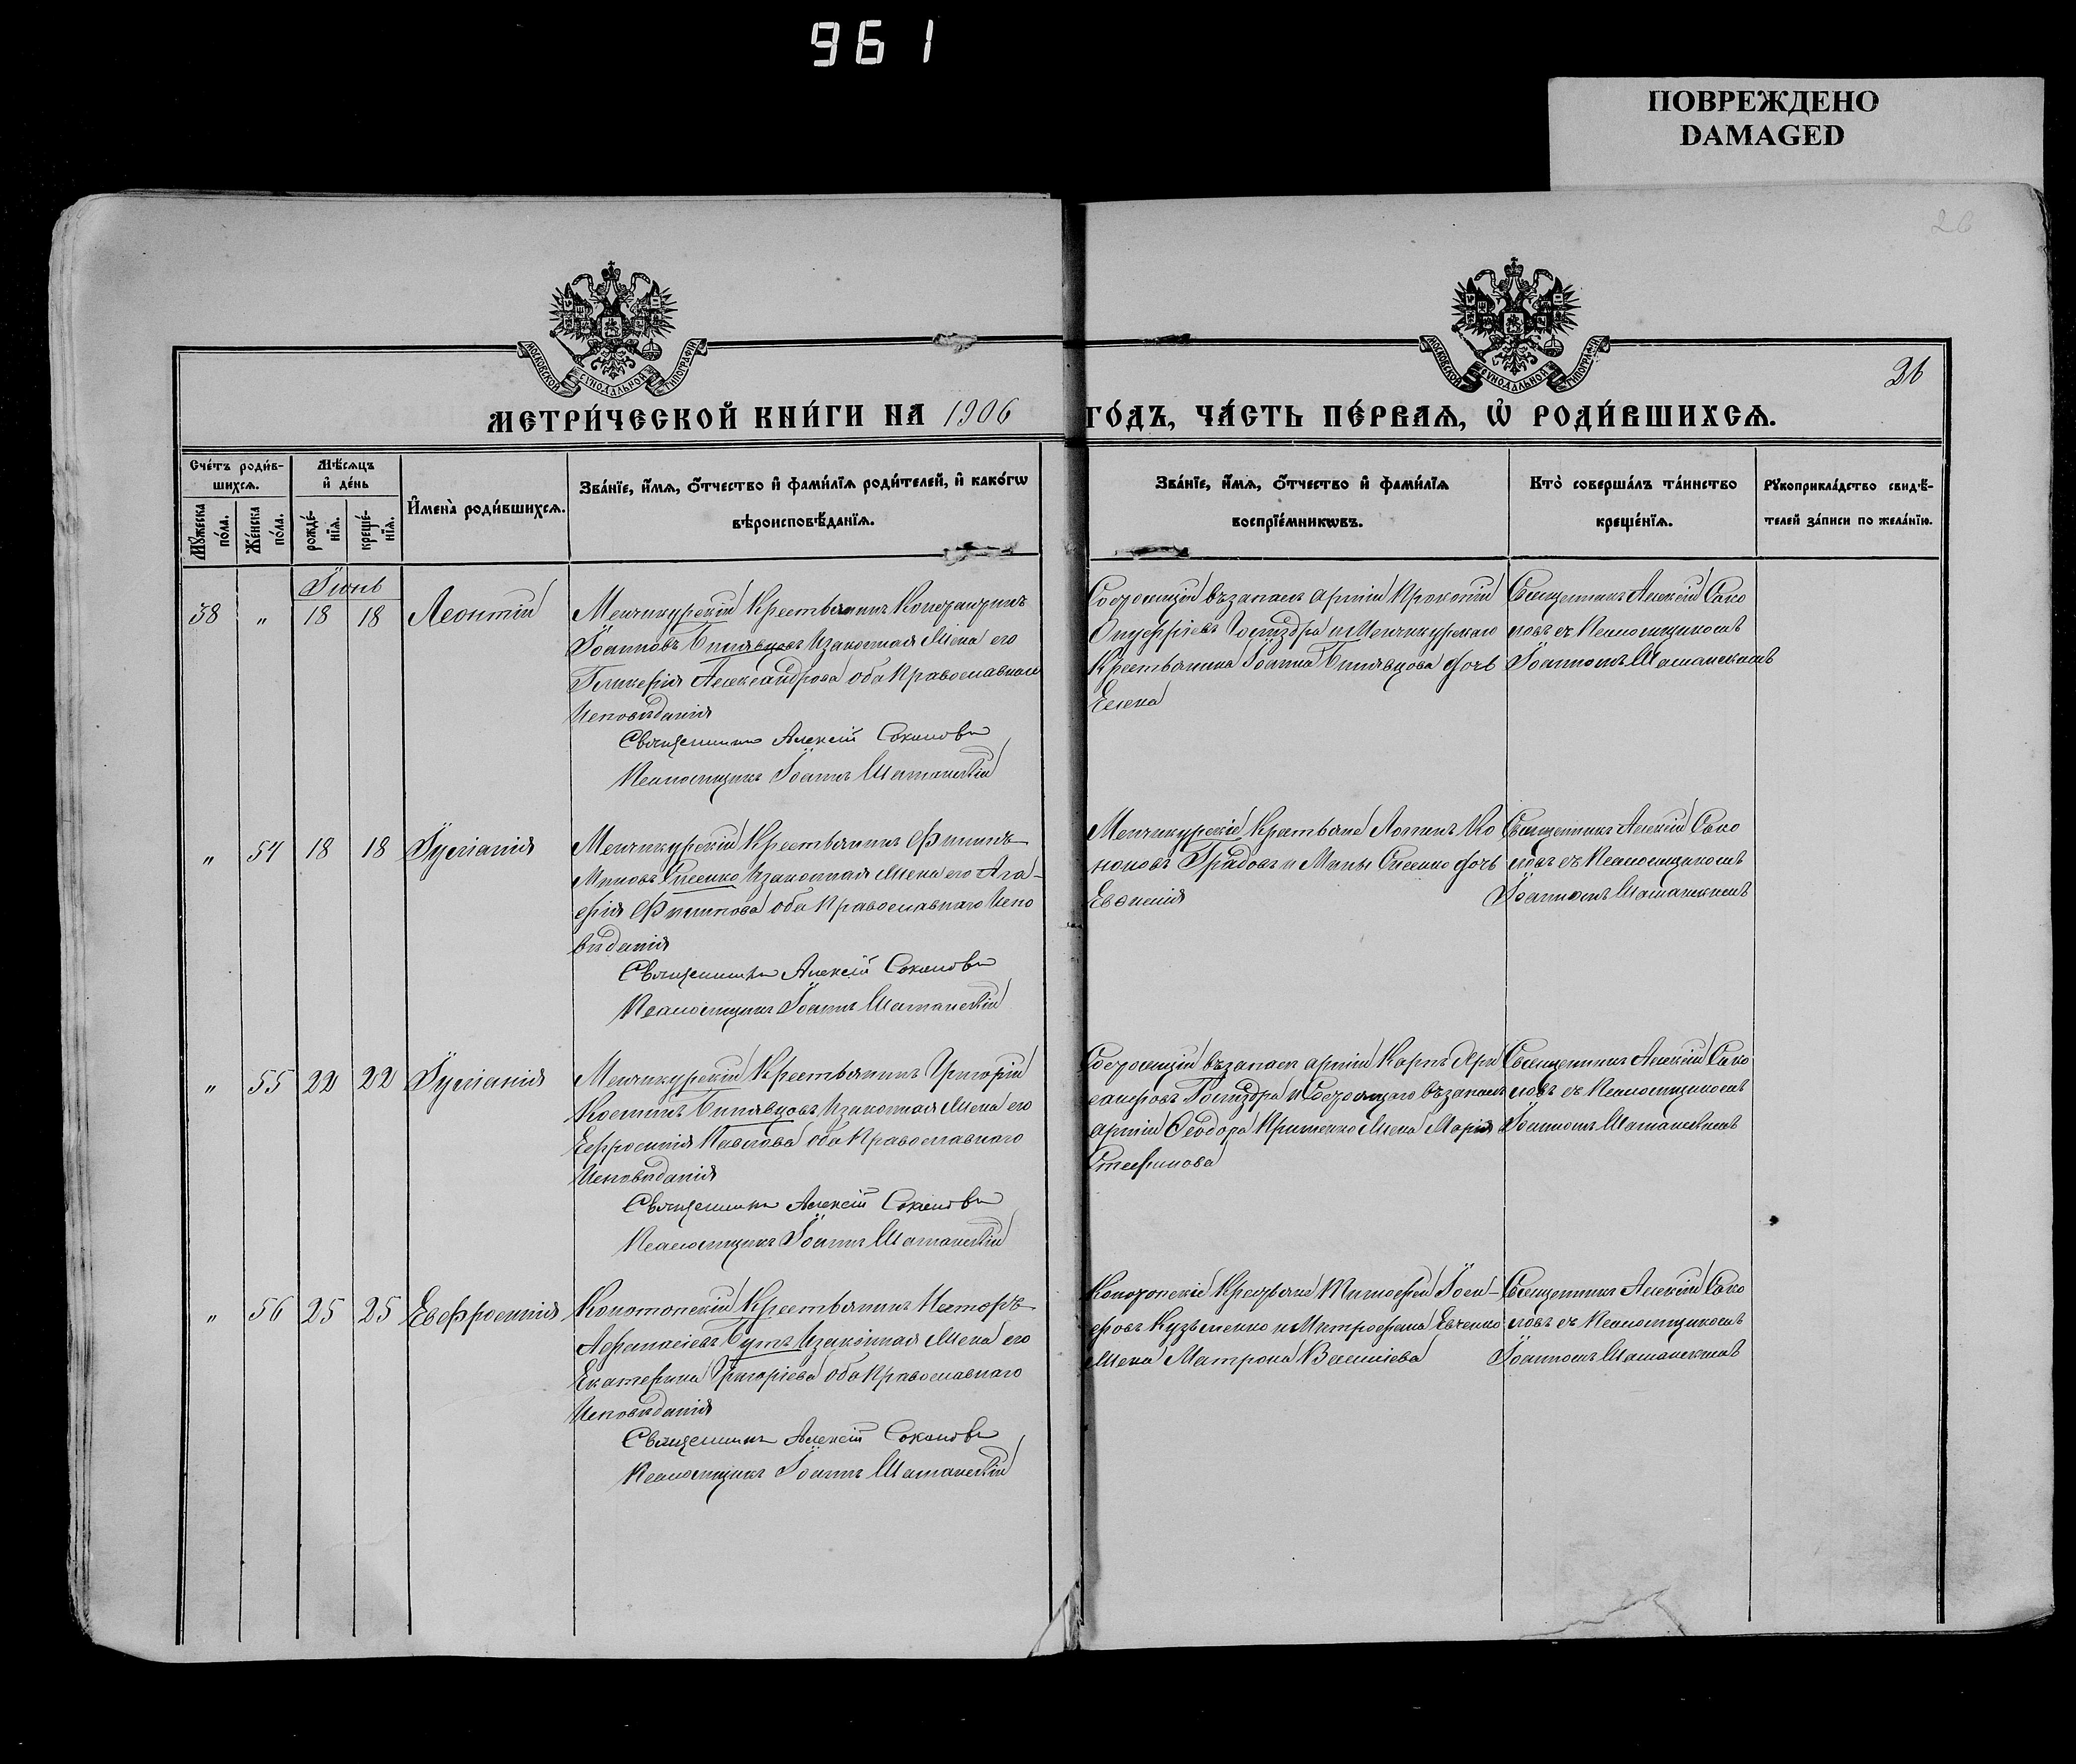 961
ПОВРЕЖДЕНО
DAMAGED
26
МОСКОВСКОЙ СѴНОДАЛЬНОЙ ТИПОГРАФІИ
МОСКОВСКОЙ СѴНОДАЛЬНОЙ ТИПОГРАФІИ
36
МЕТРИ́ЧЕСКОЙ КНИ́ГИ НА 1906 ГО́ДЪ, ЧА́СТЬ ПЕ́РВАѦ, Ѡ҆ РОДИ́ВШИХСѦ.
Сче́тъ роди́в-
шихсѧ.
Мꙋ́жеска по́ла.
Же́нска по́ла.
Мѣ́сѧцъ
и҆ де́нь
рожде́-
нїѧ.
креще́-
нїѧ.
И҆мена̀ роди́вшихсѧ.
Зва́нїе, и҆́мѧ, ѻ҆́тчество и҆ фами́лїѧ роди́телей, и҆ како́гѡ
вѣроисповѣ́данїѧ.
Зва́нїе, и҆́мѧ, ѻ҆́тчество и҆ фами́лїѧ
воспрїе́мникѡвъ.
Кто̀ соверша́лъ та́инство
креще́нїѧ.
Рꙋкоприкла́дство свидѣ́-
телей за́писи по жела́нїю.
Іюнь
38 " 18 18 Леонтій
Менчикурскій Крестьянинъ Кондратъ
Іоанновъ Билявцовъ и законная жена его
Гликерія Александрова оба Православнаго
Исповѣданія
Священникъ Алексій Соколовъ
Псаломщикъ Іоаннъ
Состоящій въ запасѣ арміи Прокопій
Онуфріевъ и Менчикурскаго
Крестьянина Іоанна Билявцова дочь
Елена
Священникъ Алексій Соко
ловъ съ Псаломщикомъ
Іоанномъ
" 54 18 18 Іуліанія
Менчикурскій Крестьянинъ Филиппъ
Миновъ и законная жена его Ага-
фія Филиппова оба Православнаго Испо
вѣданія
Священникъ Алексій Соколовъ
Псаломщикъ Іоаннъ
Менчикурскіе Крестьяне Логинъ Ко
ноновъ Градовъ и Мины дочь
Евѳимія
Священникъ Алексій Соко
ловъ съ Псаломщикомъ
Іоанномъ
" 55 22 22 Іуліанія
Менчикурскій Крестьянинъ Григорій
Косминъ Билявцовъ и законная жена его
Евфросинія Павлова оба Православнаго
Исповѣданія
Священникъ Алексій Соколовъ
Псаломщикъ Іоаннъ
Состоящій въ запасѣ арміи Карпъ
и Состоящаго въ запасѣ
арміи Ѳеодора жена Марія
Священникъ Алексій Соко
ловъ съ Псаломщикомъ
Іоанномъ
" 56 25 25 Евфросинія
Конотопскій Крестьянинъ Несторъ
Афанасіевъ и законная жена его
Екатерина Григоріева оба Православнаго
Исповѣданія
Священникъ Алексій Соколовъ
Псаломщикъ Іоаннъ
Конотопскіе Крестьяне Тимофей Іоси-
фовъ Кузьменко и Митрофана Евченко
жена Матрона Василіева
Священникъ Алексій Соко
ловъ съ Псаломщикомъ
Іоанномъ